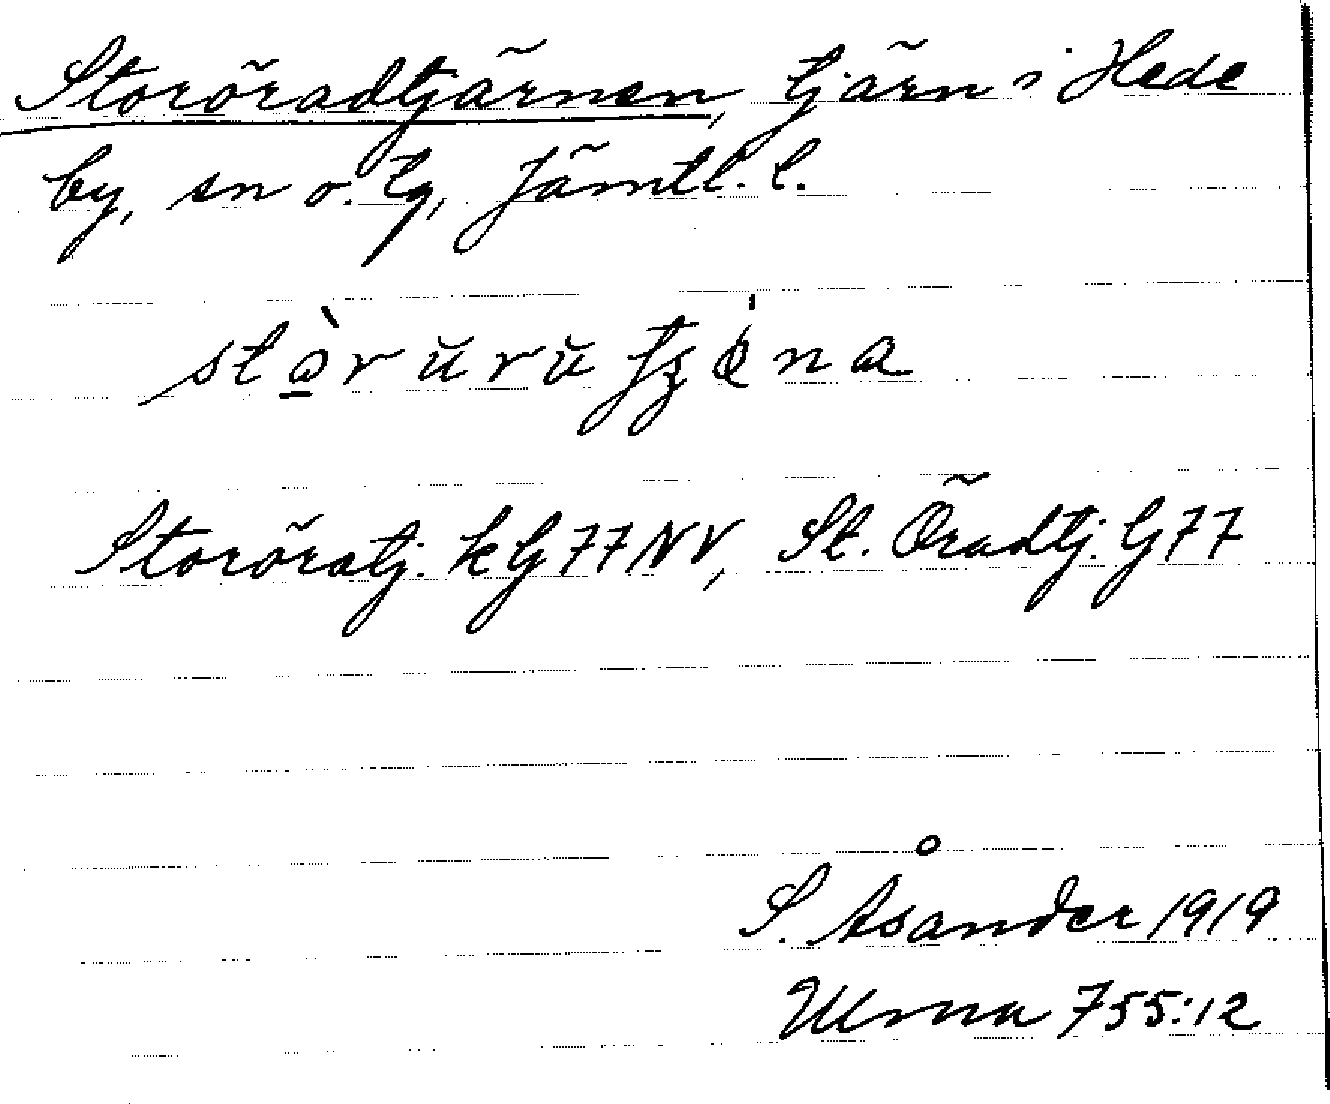 Storöradtjärnen, tjärn i Hede
by, sn o. tg, Jämtl. l.
Storöratj. kG77NV, St. Öradtj. G77
S. Åsander 1919
Ulma 755:12